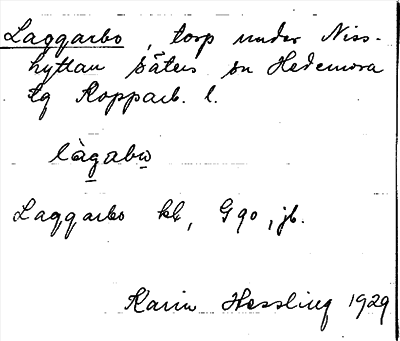 Laggarbo, torp under Niss-
hyttan Säters sn Hedemora
tg Kopparb. l.
làgabω
Laggarbo kk, G 90, jb.
Karin Hessling 1929